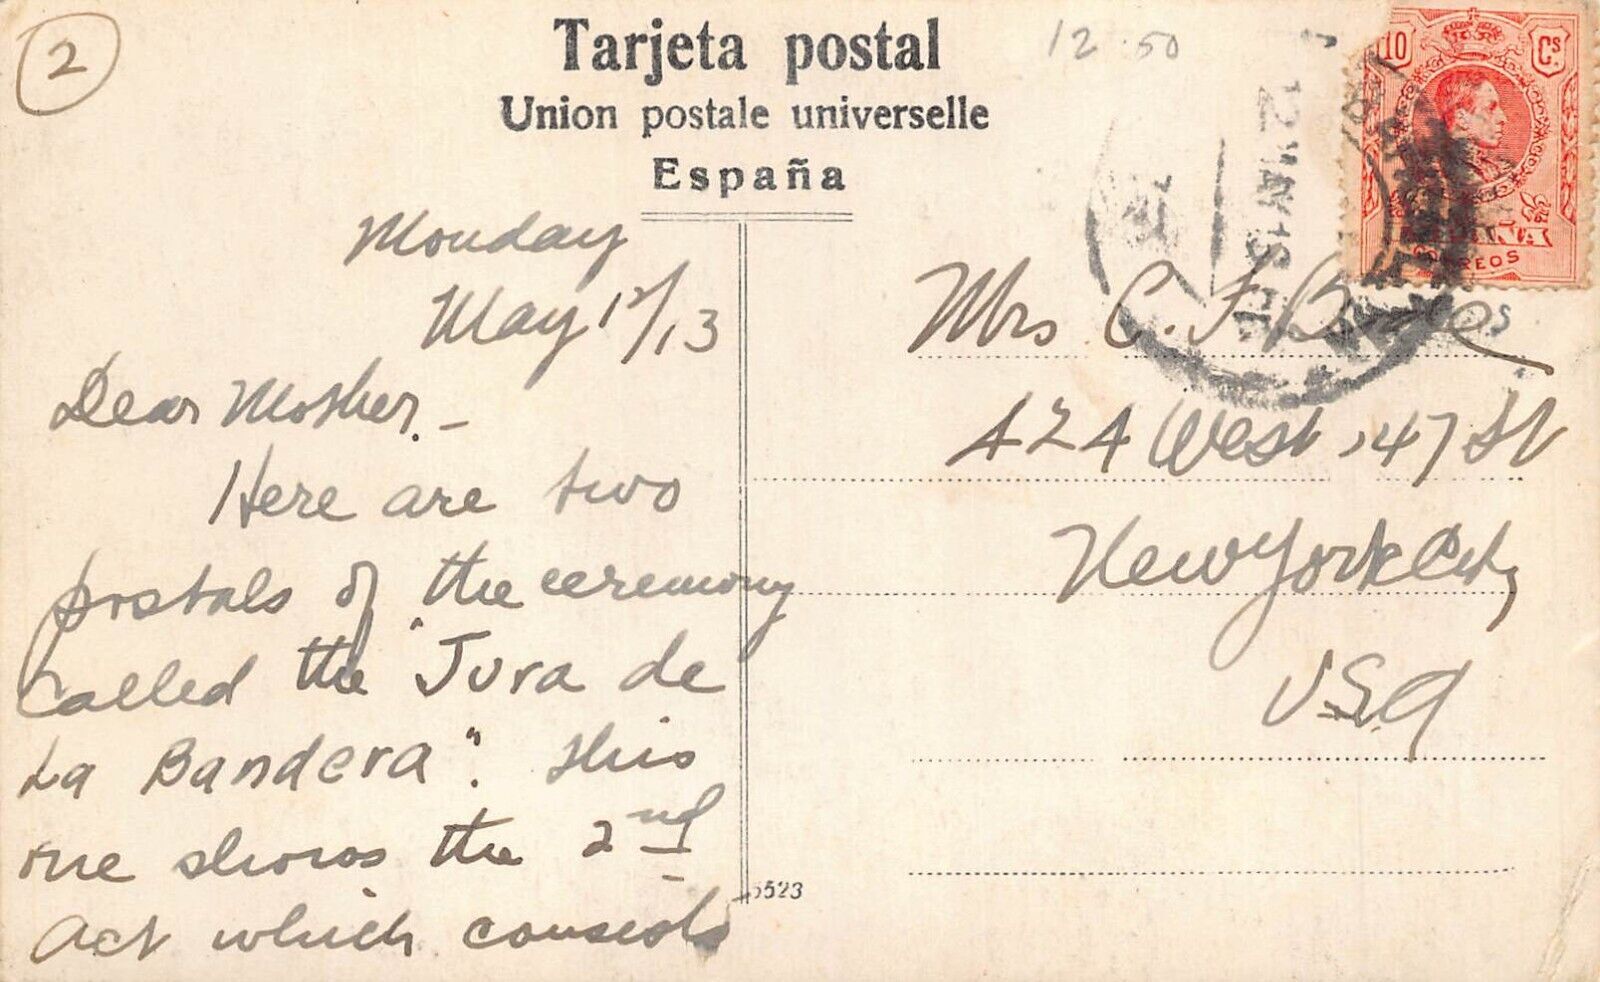 2
Tarjeta postal
Union postale universelle
España
12.50
10 Cs
CORREOS
Monday
May 12/13
Dear Mother. -
Here are two
postals of the ceremony
called the "Jura de
La Bandera". This
one shows the 2nd
act which consists
Mrs C. F.
424 West 147 St
New York City
USA
5523